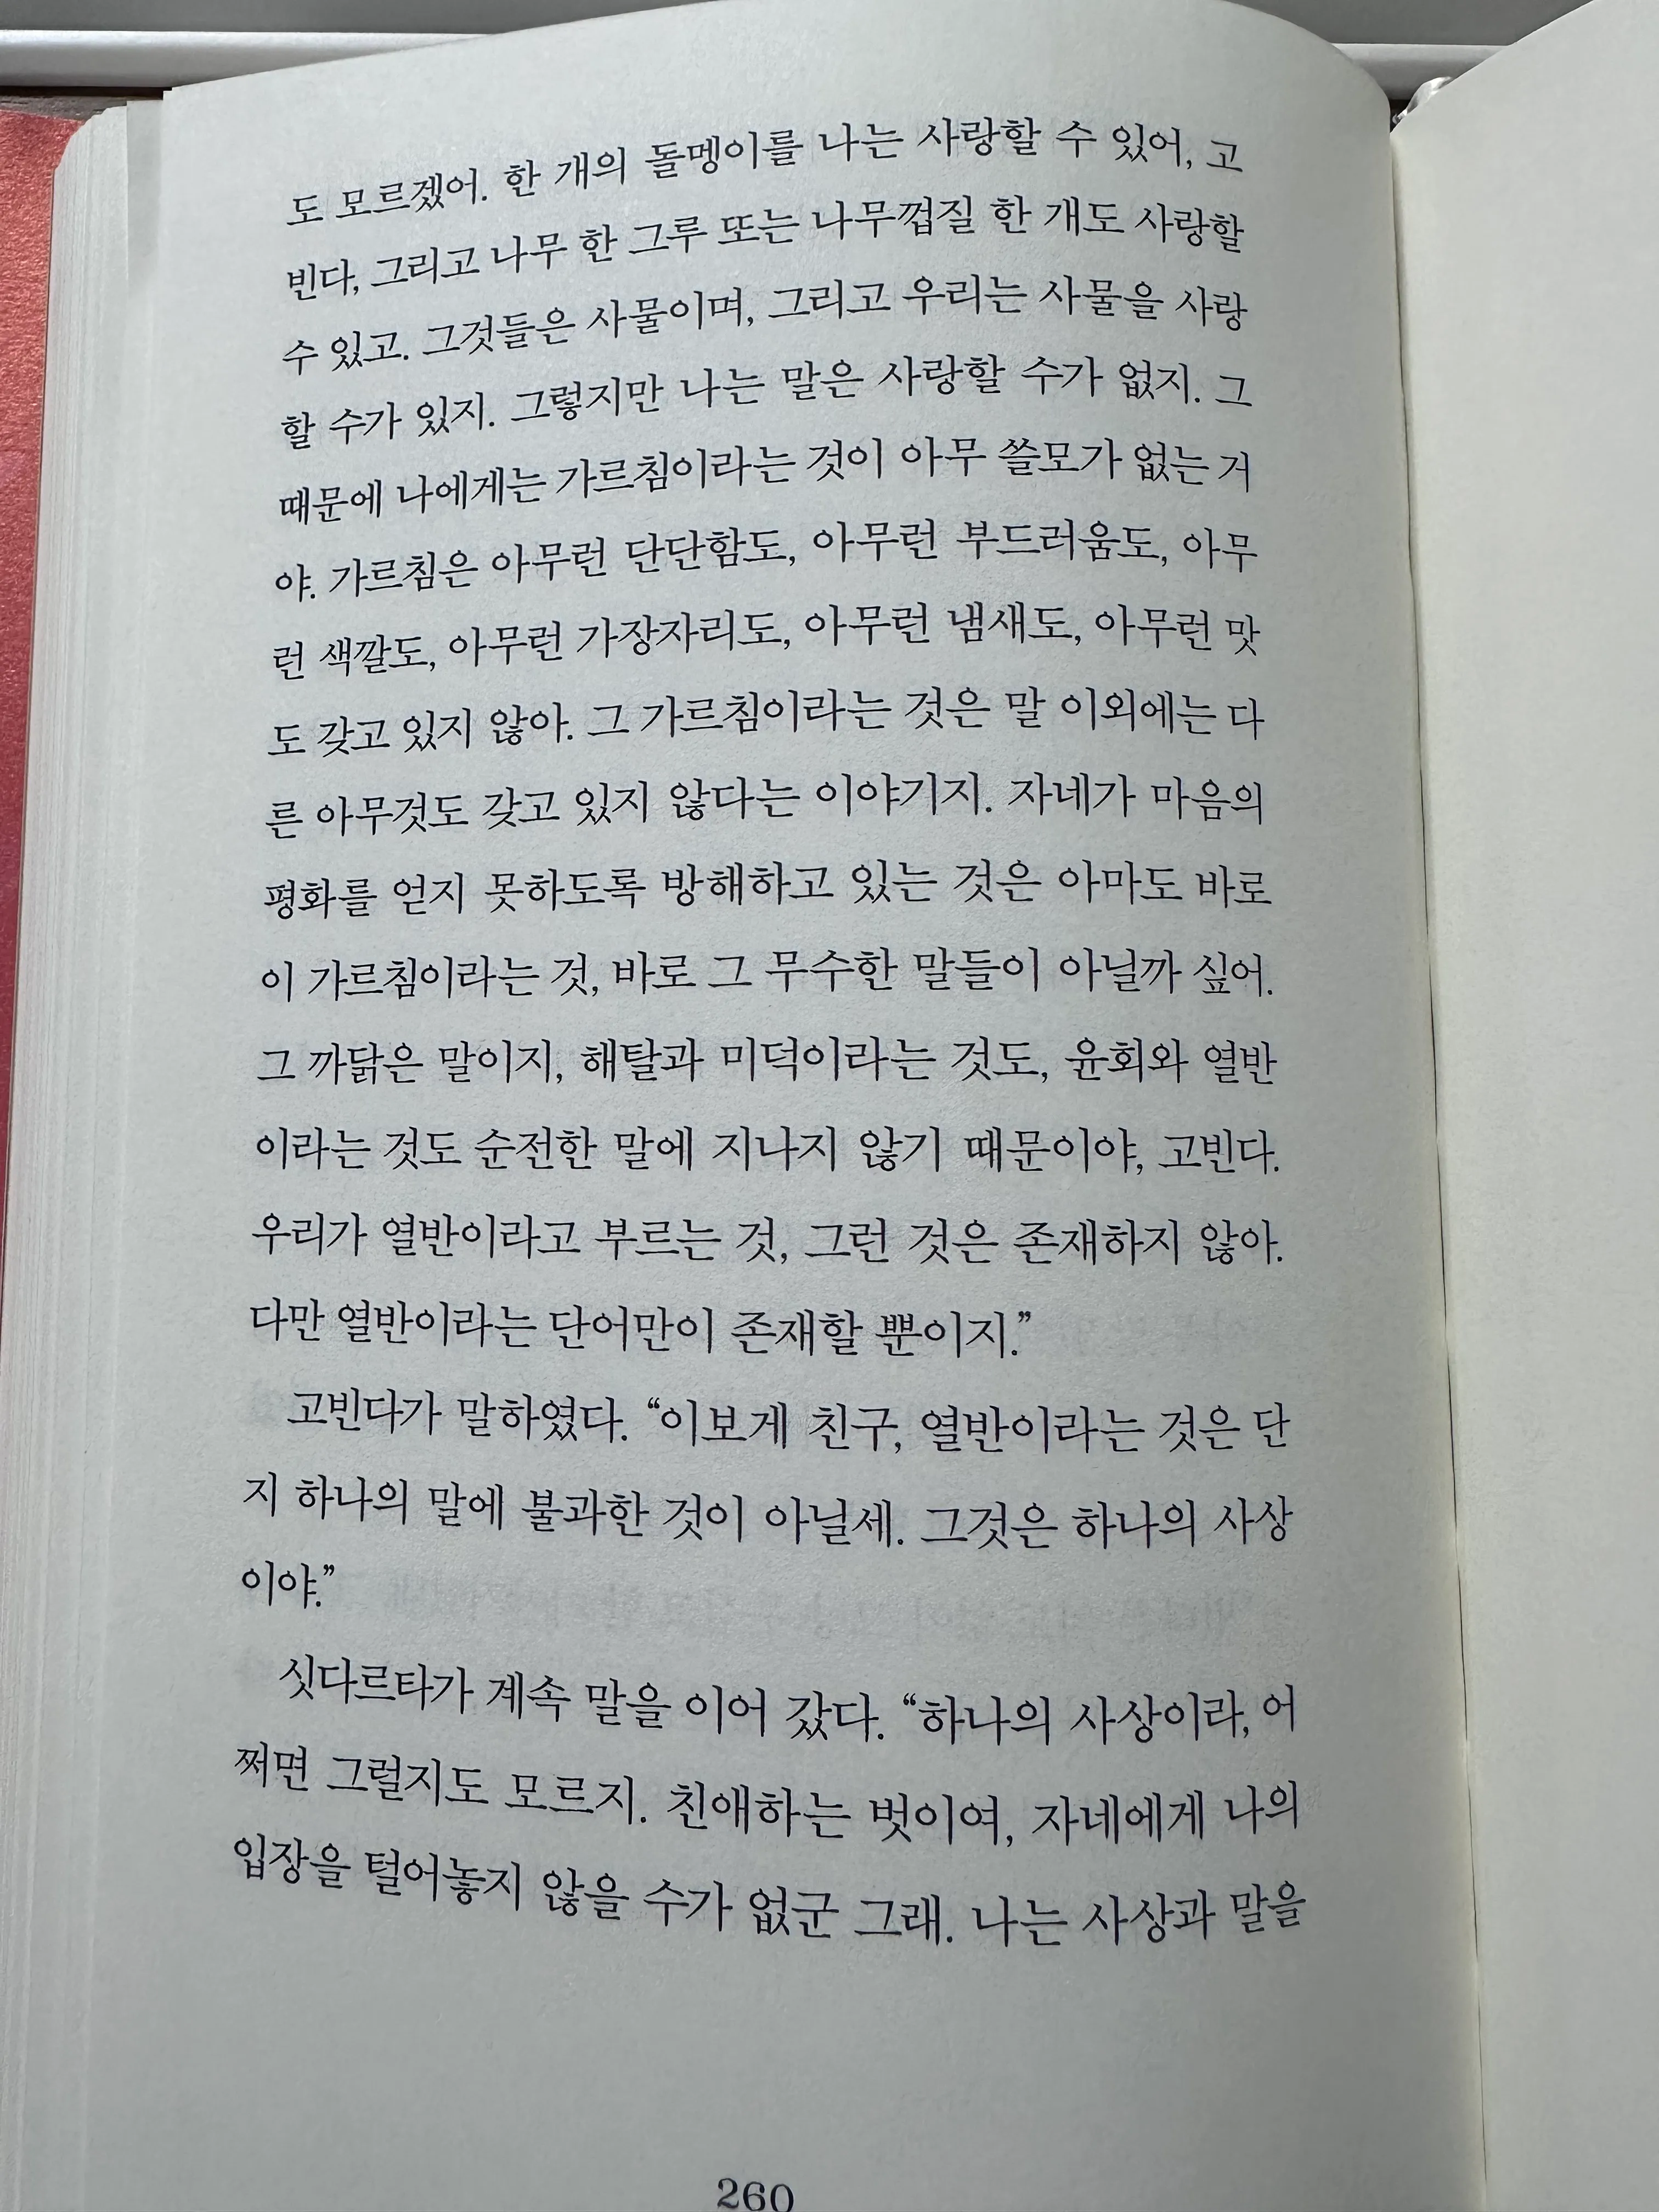 도 모르겠어. 한 개의 돌멩이를 나는 사랑할 수 있어, 고
빈다, 그리고 나무 한 그루 또는 나무껍질 한 개도 사랑할
수 있고. 그것들은 사물이며, 그리고 우리는 사물을 사랑
할 수가 있지. 그렇지만 나는 말은 사랑할 수가 없지. 그
때문에 나에게는 가르침이라는 것이 아무 쓸모가 없는 거
야. 가르침은 아무런 단단함도, 아무런 부드러움도, 아무
런 색깔도, 아무런 가장자리도, 아무런 냄새도, 아무런 맛
도 갖고 있지 않아. 그 가르침이라는 것은 말 이외에는 다
른 아무것도 갖고 있지 않다는 이야기지. 자네가 마음의
평화를 얻지 못하도록 방해하고 있는 것은 아마도 바로
이 가르침이라는 것, 바로 그 무수한 말들이 아닐까 싶어.
그 까닭은 말이지, 해탈과 미덕이라는 것도, 윤회와 열반
이라는 것도 순전한 말에 지나지 않기 때문이야, 고빈다.
우리가 열반이라고 부르는 것, 그런 것은 존재하지 않아.
다만 열반이라는 단어만이 존재할 뿐이지.”
고빈다가 말하였다. “이보게 친구, 열반이라는 것은 단
지 하나의 말에 불과한 것이 아닐세. 그것은 하나의 사상
이야.”
싯다르타가 계속 말을 이어 갔다. “하나의 사상이라, 어
쩌면 그럴지도 모르지. 친애하는 벗이여, 자네에게 나의
입장을 털어놓지 않을 수가 없군 그래. 나는 사상과 말을
260